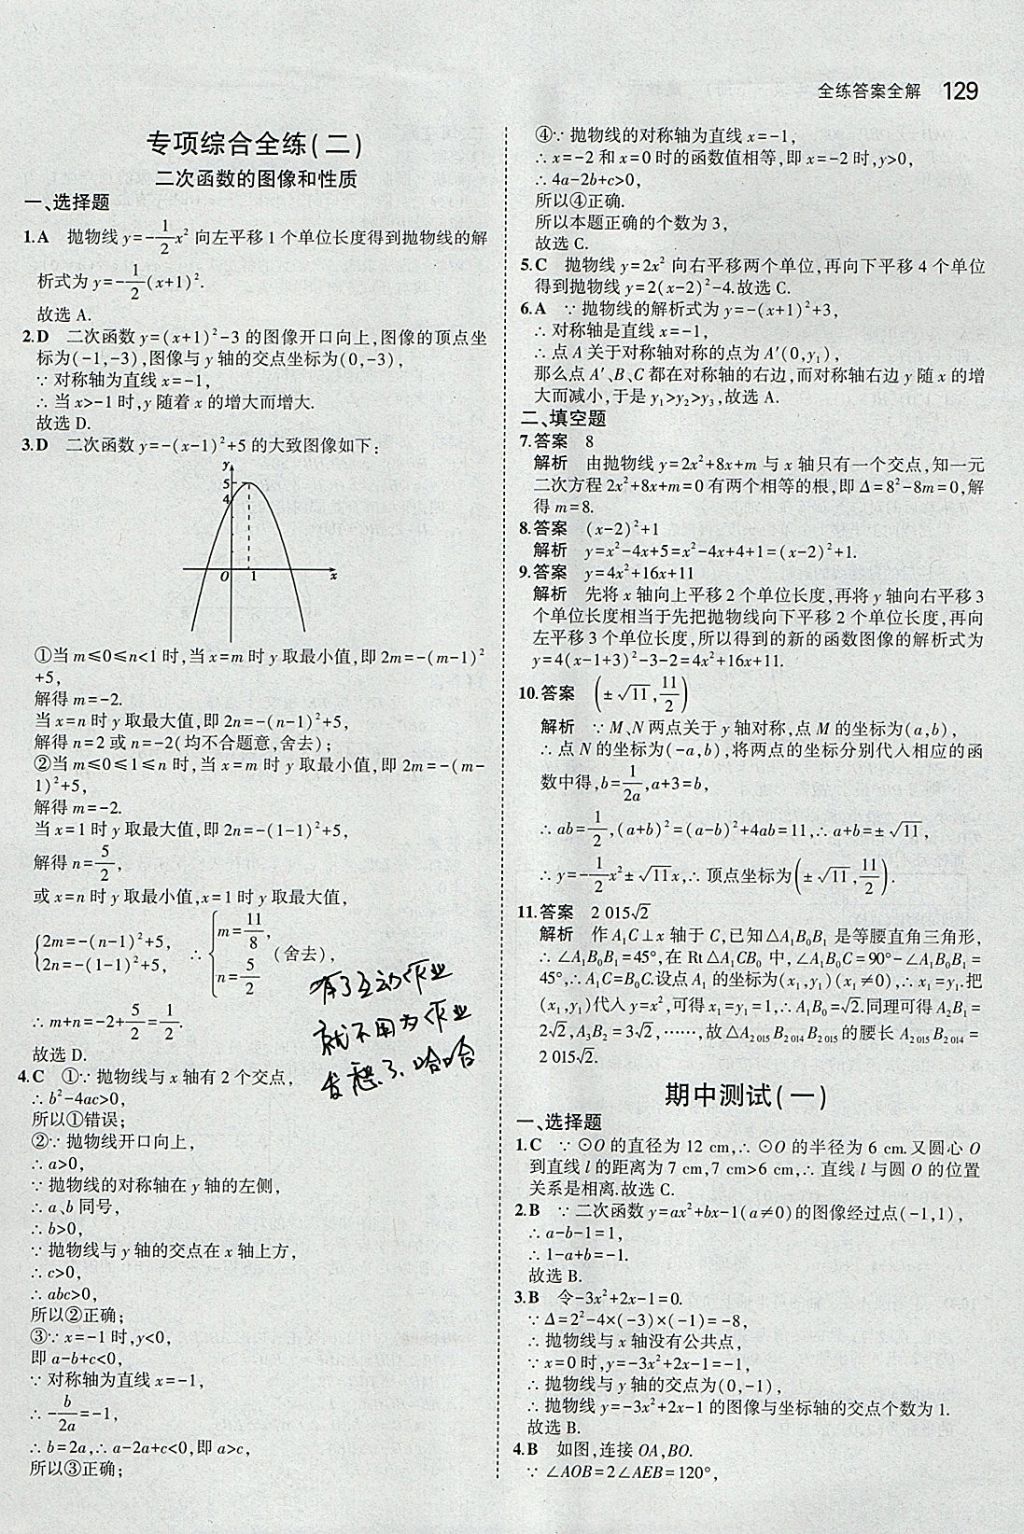 全练答案全解 129
专项综合全练(二)
二次函数的图像和性质
一、选择题
1.A 抛物线y=-1/2x²向左平移1个单位长度得到抛物线的解
析式为y=-1/2(x+1)².
故选A.
2.D 二次函数y=(x+1)²-3的图像开口向上,图像的顶点坐
标为(-1,-3),图像与y轴的交点坐标为(0,-3),
∵对称轴为直线x=-1,
∴当x>-1时,y随着x的增大而增大.
故选D.
3.D 二次函数y=-(x-1)²+5的大致图像如下:
y
5
4
O 1 x
①当m≤0≤n<1时,当x=m时y取最小值,即2m=-(m-1)²
+5,
解得m=-2.
当x=n时y取最大值,即2n=-(n-1)²+5,
解得n=2或n=-2(均不合题意,舍去);
②当m≤0≤1≤n时,当x=m时y取最小值,即2m=-(m-
1)²+5,
解得m=-2.
当x=1时y取最大值,即2n=-(1-1)²+5,
解得n=5/2,
或x=n时y取最小值,x=1时y取最大值,
{2m=-(n-1)²+5, 2n=-(1-1)²+5, ∴{m=11/8, n=5/2 (舍去),
∴m+n=-2+5/2=1/2.
故选D.
有了互动作业
就不用为作业
发愁了.哈哈
4.C ①∵抛物线与x轴有2个交点,
∴b²-4ac>0,
所以①错误;
②∵抛物线开口向上,
∴a>0,
∵抛物线的对称轴在y轴的左侧,
∴a、b同号,
∴b>0,
∵抛物线与y轴的交点在x轴上方,
∴c>0,
∴abc>0,
所以②正确;
③∵x=-1时,y<0,
即a-b+c<0,
∵对称轴为直线x=-1,
∴-b/2a=-1,
∴b=2a,∴a-2a+c<0,即a>c,
所以③正确;
④∵抛物线的对称轴为直线x=-1,
∴x=-2和x=0时的函数值相等,即x=-2时,y>0,
∴4a-2b+c>0,
所以④正确.
所以本题正确的个数为3,
故选C.
5.C 抛物线y=2x²向右平移两个单位,再向下平移4个单位
得到抛物线y=2(x-2)²-4.故选C.
6.A ∵抛物线的解析式为y=-(x+1)²+3,
∴对称轴是直线x=-1,
∴点A关于对称轴对称的点为A′(0,y₁),
那么点A′、B、C都在对称轴的右边,而对称轴右边y随x的增
大而减小,于是y₁>y₂>y₃,故选A.
二、填空题
7.答案 8
解析 由抛物线y=2x²+8x+m与x轴只有一个交点,知一元
二次方程2x²+8x+m=0有两个相等的根,即Δ=8²-8m=0,解
得m=8.
8.答案 (x-2)²+1
解析 y=x²-4x+5=x²-4x+4+1=(x-2)²+1.
9.答案 y=4x²+16x+11
解析 先将x轴向上平移2个单位长度,再将y轴向右平移3
个单位长度相当于先把抛物线向下平移2个单位长度,再向
左平移3个单位长度,所以得到的新的函数图像的解析式为
y=4(x-1+3)²-3-2=4x²+16x+11.
10.答案 (±√11,11/2)
解析 ∵M、N两点关于y轴对称,点M的坐标为(a,b),
∴点N的坐标为(-a,b),将两点的坐标分别代入相应的函
数中得,b=1/2a,a+3=b,
∴ab=1/2,(a+b)²=(a-b)²+4ab=11,∴a+b=±√11,
∴y=-1/2x²±√11x,∴顶点坐标为(±√11,11/2).
11.答案 2 015√2
解析 作A₁C⊥x轴于C,已知△A₁B₀B₁是等腰直角三角形,
∴∠A₁B₀B₁=45°,在Rt△A₁CB₀中,∠A₁B₀C=90°-∠A₁B₀B₁=
45°,∴A₁C=B₀C.设点A₁的坐标为(x₁,y₁)(x₁≠0),∴x₁=y₁.把
(x₁,y₁)代入y=x²,可得x₁=y₁=1,∴A₁B₀=√2.同理可得A₂B₁=
2√2,A₃B₂=3√2,……,故△A₂₀₁₅B₂₀₁₄B₂₀₁₅的腰长A₂₀₁₅B₂₀₁₄=
2 015√2.
期中测试(一)
一、选择题
1.C ∵⊙O的直径为12 cm,∴⊙O的半径为6 cm.又圆心O
到直线l的距离为7 cm,7 cm>6 cm,∴直线l与圆O的位置
关系是相离.故选C.
2.B ∵二次函数y=ax²+bx-1(a≠0)的图像经过点(-1,1),
∴a-b-1=1,
∴1-a+b=-1.
故选B.
3.B 令-3x²+2x-1=0.
∵Δ=2²-4×(-3)×(-1)=-8,
∴抛物线与x轴没有公共点,
∵x=0时,y=-3x²+2x-1=-1,
∴抛物线与y轴的交点为(0,-1),
∴抛物线y=-3x²+2x-1的图像与坐标轴的交点个数为1.
故选B.
4.B 如图,连接OA,BO.
∵∠AOB=2∠AEB=120°,